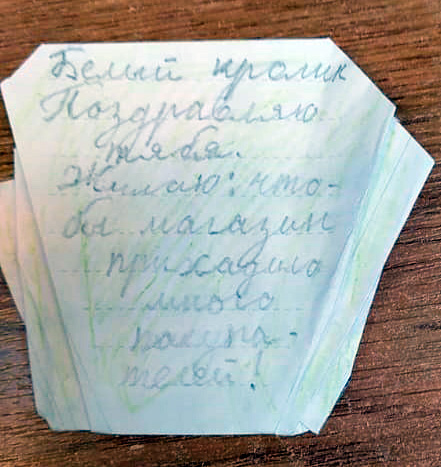 Белый кролик
Поздравляю
тябя.
Жилаю: что-
бы магазин
прихадило
много
пакупа-
телей!